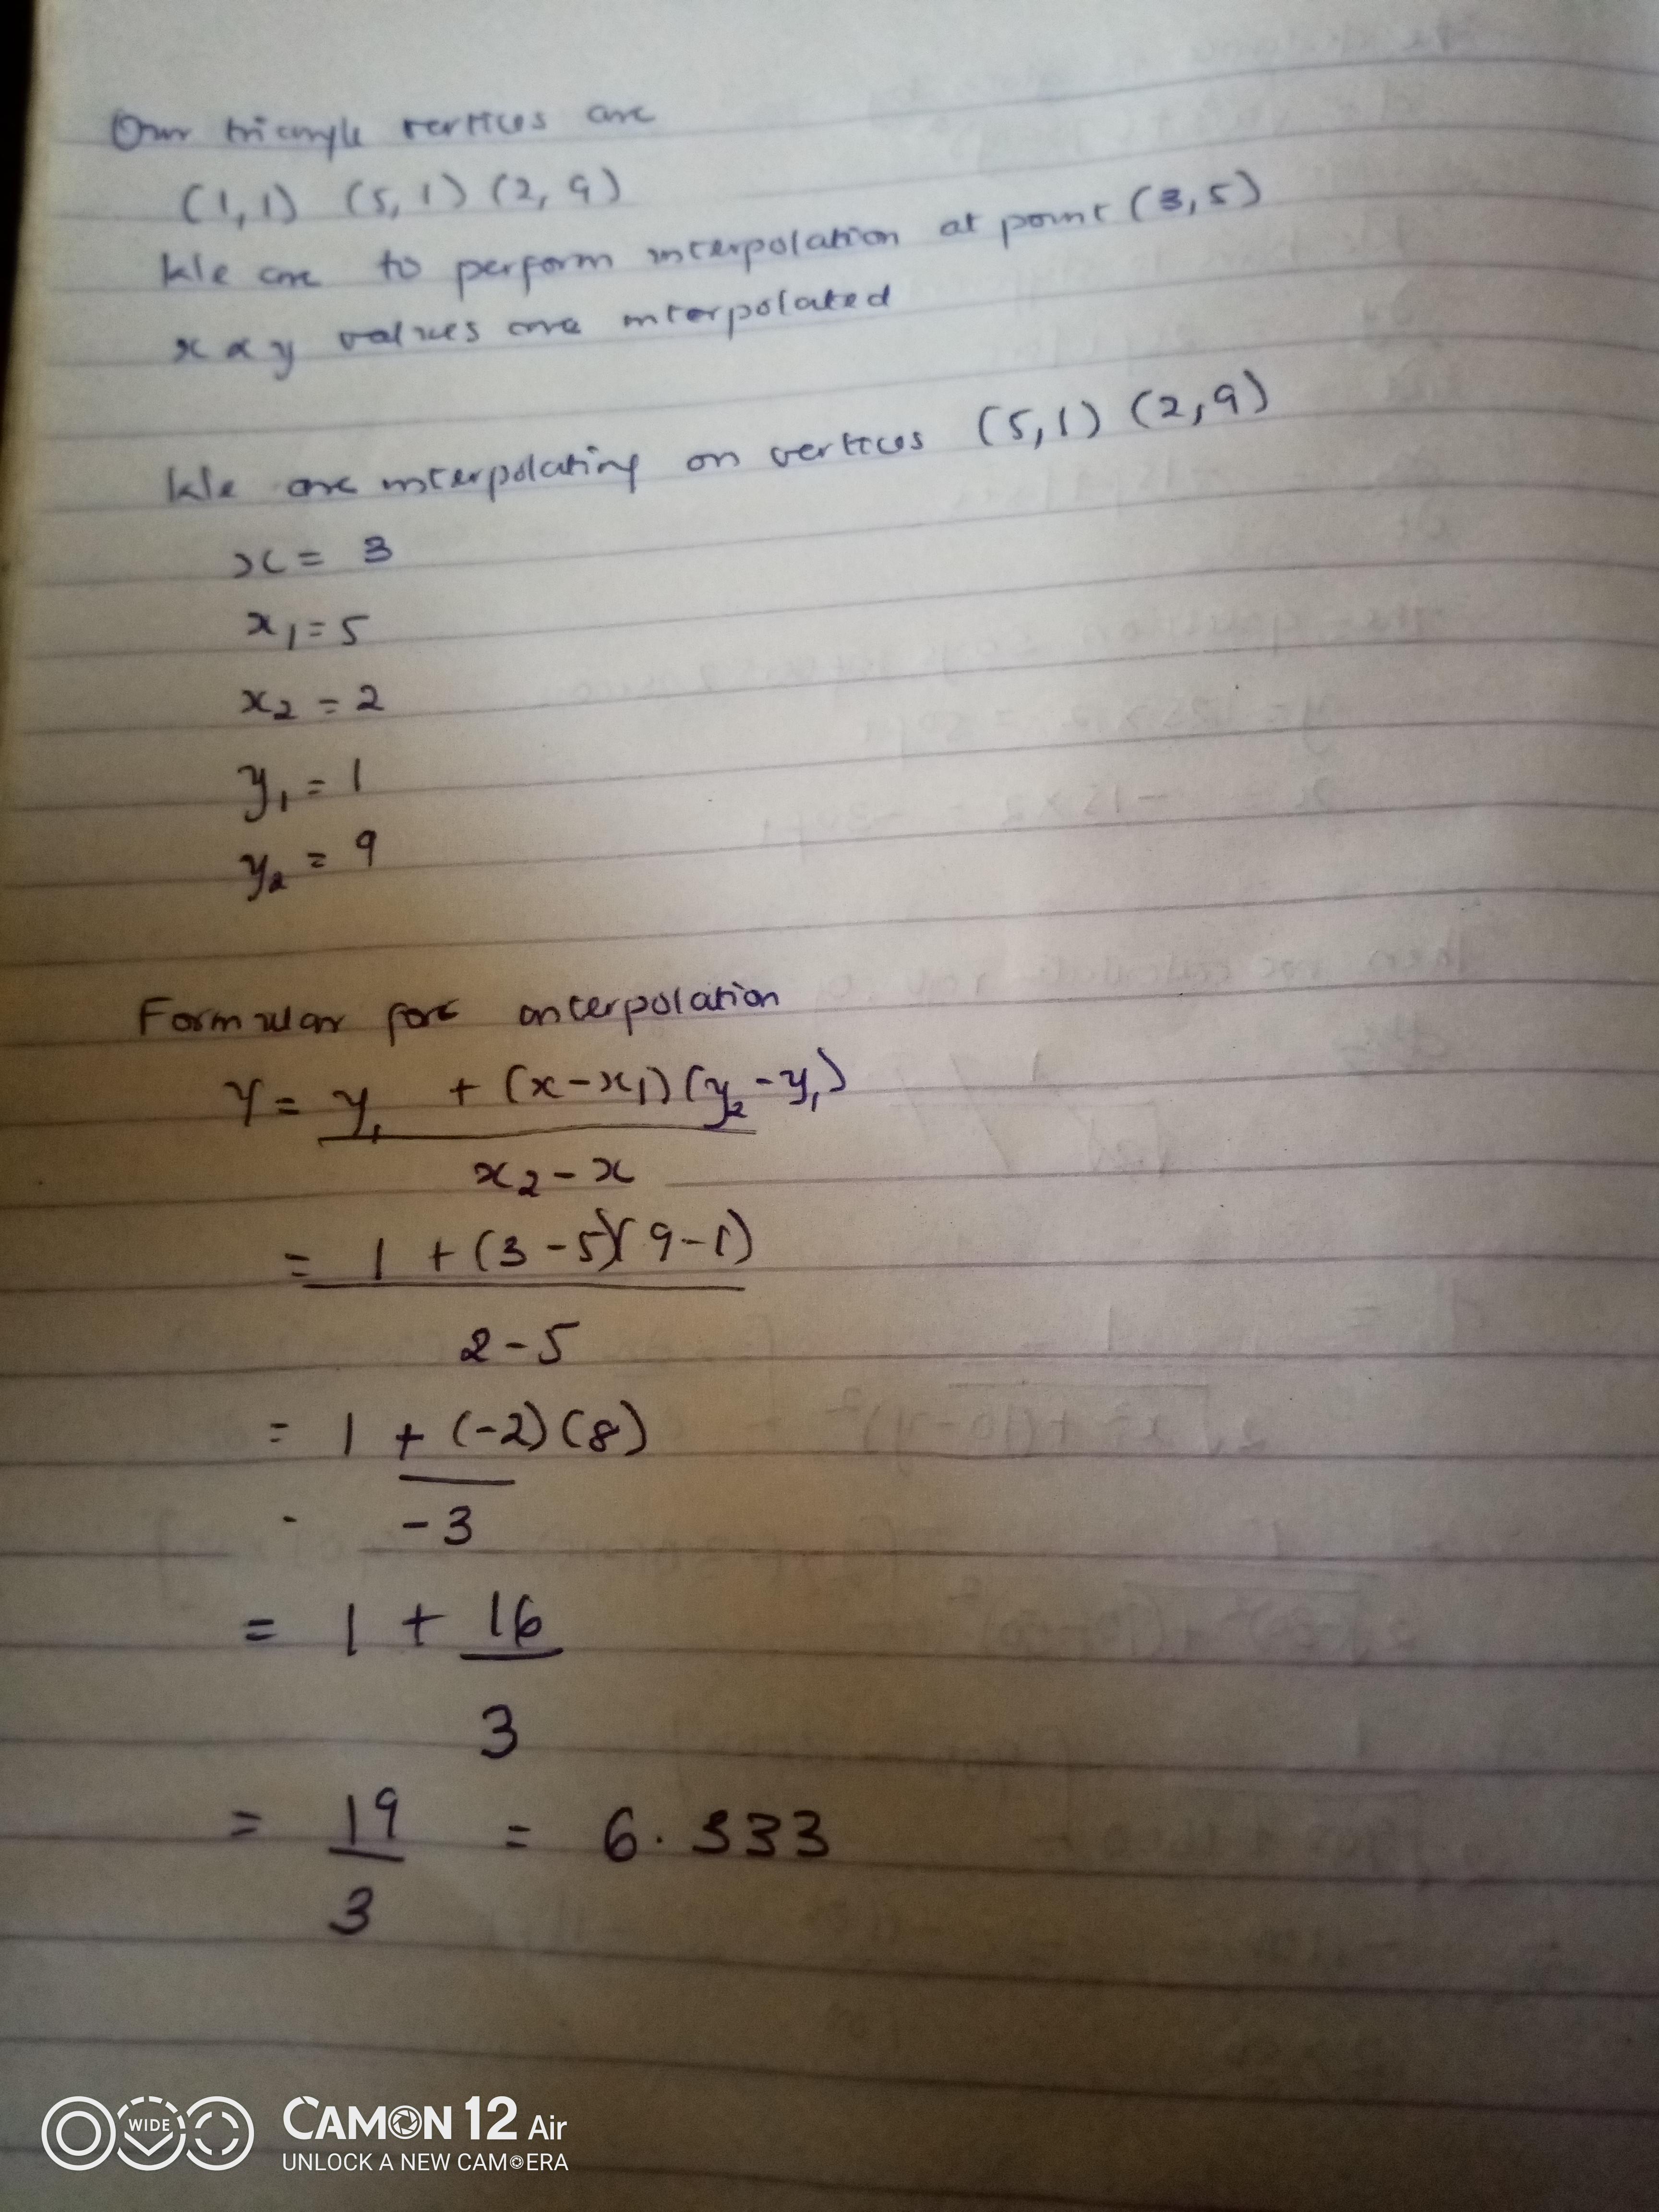 Our triangle vertices are
(1,1) (5,1) (2,9)
We are to perform interpolation at point (3,5)
x & y values are interpolated
We are interpolating on vertices (5,1) (2,9)
x = 3
x₁ = 5
x₂ = 2
y₁ = 1
y₂ = 9
Formular for interpolation
Y = y₁ + (x-x₁)(y₂-y₁)
x₂ - x
= 1 + (3-5)(9-1)
2-5
= 1 + (-2)(8)
-3
= 1 + 16
3
= 19 = 6.333
3
WIDE
CAMON 12 Air
UNLOCK A NEW CAMERA